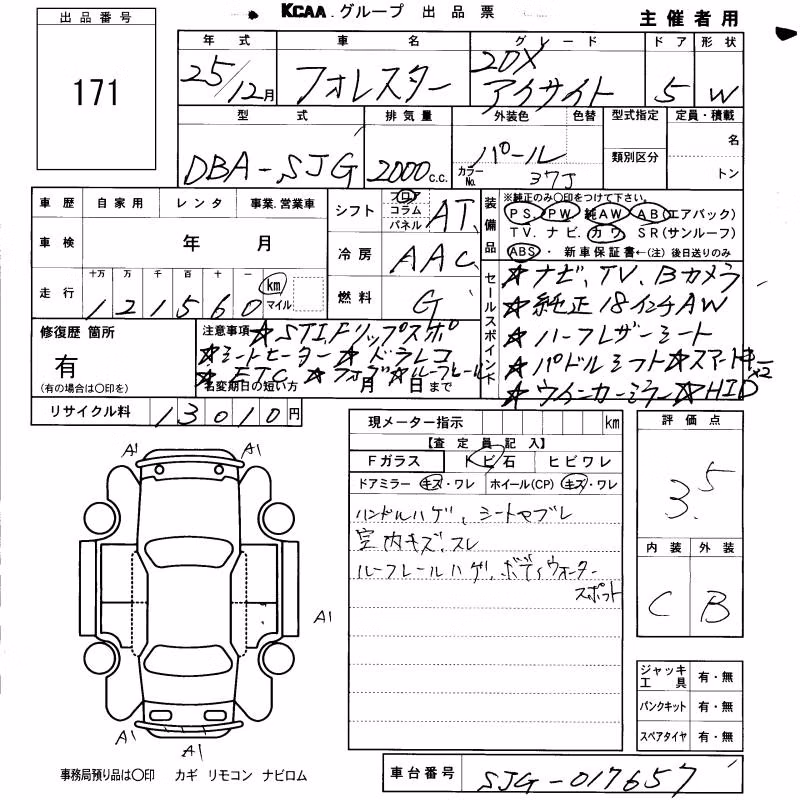 KCAA.グループ 出品票
主催者用
出品番号
171
年式 車名 グレード ドア 形状
25/12月 フォレスター 20X アイサイト 5 W
型式 排気量 外装色 色替 型式指定 定員・積載
DBA-SJG 2000c.c. パール
カラーNo. 37J
類別区分
名
トン
車歴 自家用 レンタ 事業.営業車
車検 年 月
走行 十万 万 千 百 十 一
121560 km マイル
シフト フロア コラム パネル AT
冷房 AAC
燃料 G
装備品
※純正のみ〇印をつけて下さい。
PS. PW 純AW AB(エアバック)
TV. ナビ. カワ SR(サンルーフ)
ABS・新車保証書←(注)後日送りのみ
セールスポイント
★ナビ、TV、Bカメラ
★純正18インチAW
★ハーフレザーシート
★パドルシフト★スマートキー×2
★ウインカーミラー★HID
修復歴 箇所
有
(有の場合は〇印を)
注意事項 ★STIFリップスポ
★シートヒーター★ドラレコ
★ETC ★フォグ★ルーフレール
名変期日の短い方 月 日まで
リサイクル料 13010円
現メーター指示 km
【査定員記入】
Fガラス トビ石 ヒビワレ
ドアミラー キズ・ワレ ホイール(CP) キズ・ワレ
ハンドルハゲ、シートヤブレ
室内キズ、スレ
ルーフレールハゲ、ボディウォーター
スポット
評価点
3.5
内装 外装
C B
A1 A1
A1
A1 A1
A1
ジャッキ工具 有・無
パンクキット 有・無
スペアタイヤ 有・無
事務局預り品は〇印 カギ リモコン ナビロム
車台番号 SJG-017657